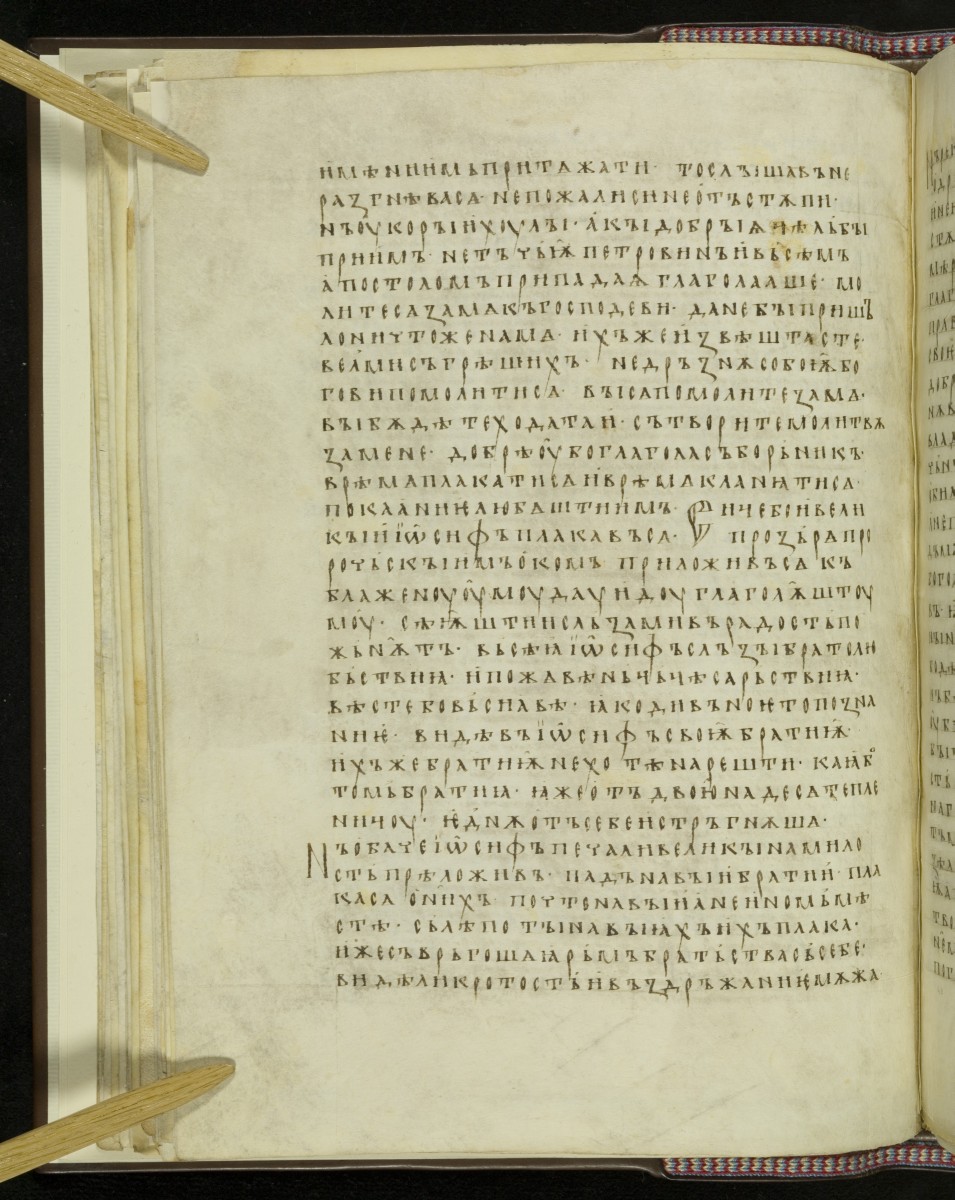 имѣниимь притѧжати · то слꙑшавъ не
разгнѣва сѧ · не пожали си не отъстѫпи ·
нъ оукорꙑ и хоулꙑ · акꙑ добрꙑѩ цѣльбꙑ
приимъ · не тъчьѭ петрови нъ и вьсѣмъ
апостоломъ припадаѩ глаголааше · мо
лите сѧ за мѧ къ господеви · да не бꙑ пришъ
ло ничтоже на мѧ · ихъже извѣштасте
вельми съгрѣшихъ · не дръзнѫ собоѭ бо
гови помолити сѧ · вꙑ сѧ помолите за мѧ ·
вꙑ бѫдѣте ходатаи · сътворите молитвѫ
за мене · добрѣ оубо глагола съборьникъ
врѣмѧ плакати сѧ и врѣмѧ кланꙗти сѧ ·
покаꙗниꙗ любѧштиимъ · ричебои вели
кꙑи иѡсифъ плакавъ сѧ · прозьрѧ про
рочьскꙑимъ окомъ приложивъ сѧ къ
блаженоуоумоу дауидоу глаголѭштоу
моу · сѣѭштии сльзами въ радость по
жьнѭтъ · вьсѣꙗ иѡсифъ слъзꙑ братолю
бьствиꙗ · и пожѧ вѣньчь чѣсарьствиꙗ ·
вѣсте бо вьси авѣ · ꙗко дивъно ѥ то позна
ниѥ · видѣвъ иѡсифъ своѭ братиѭ ·
ихъже братиѭ не хотѣ нарешти · каꙗ бо
томь братиꙗ · ꙗже отъ двоюнадесѧте пле
ничоу · ѥдинѫ отъ себе истръгнѫшѧ ·
Нъ обаче иѡсифъ печали великꙑ на мило
сть прѣложивъ · надъ навꙑи братии пла
ка сѧ о нихъ почте навꙑи а не и номь мѣ
стѣ · сълѣпотꙑ навꙑꙗхъ ихъ плака ·
иже съврьгошѧ ꙗрьмъ братьства съ себе ·
видѣли кротость и въздръжаниѥ мѫжа